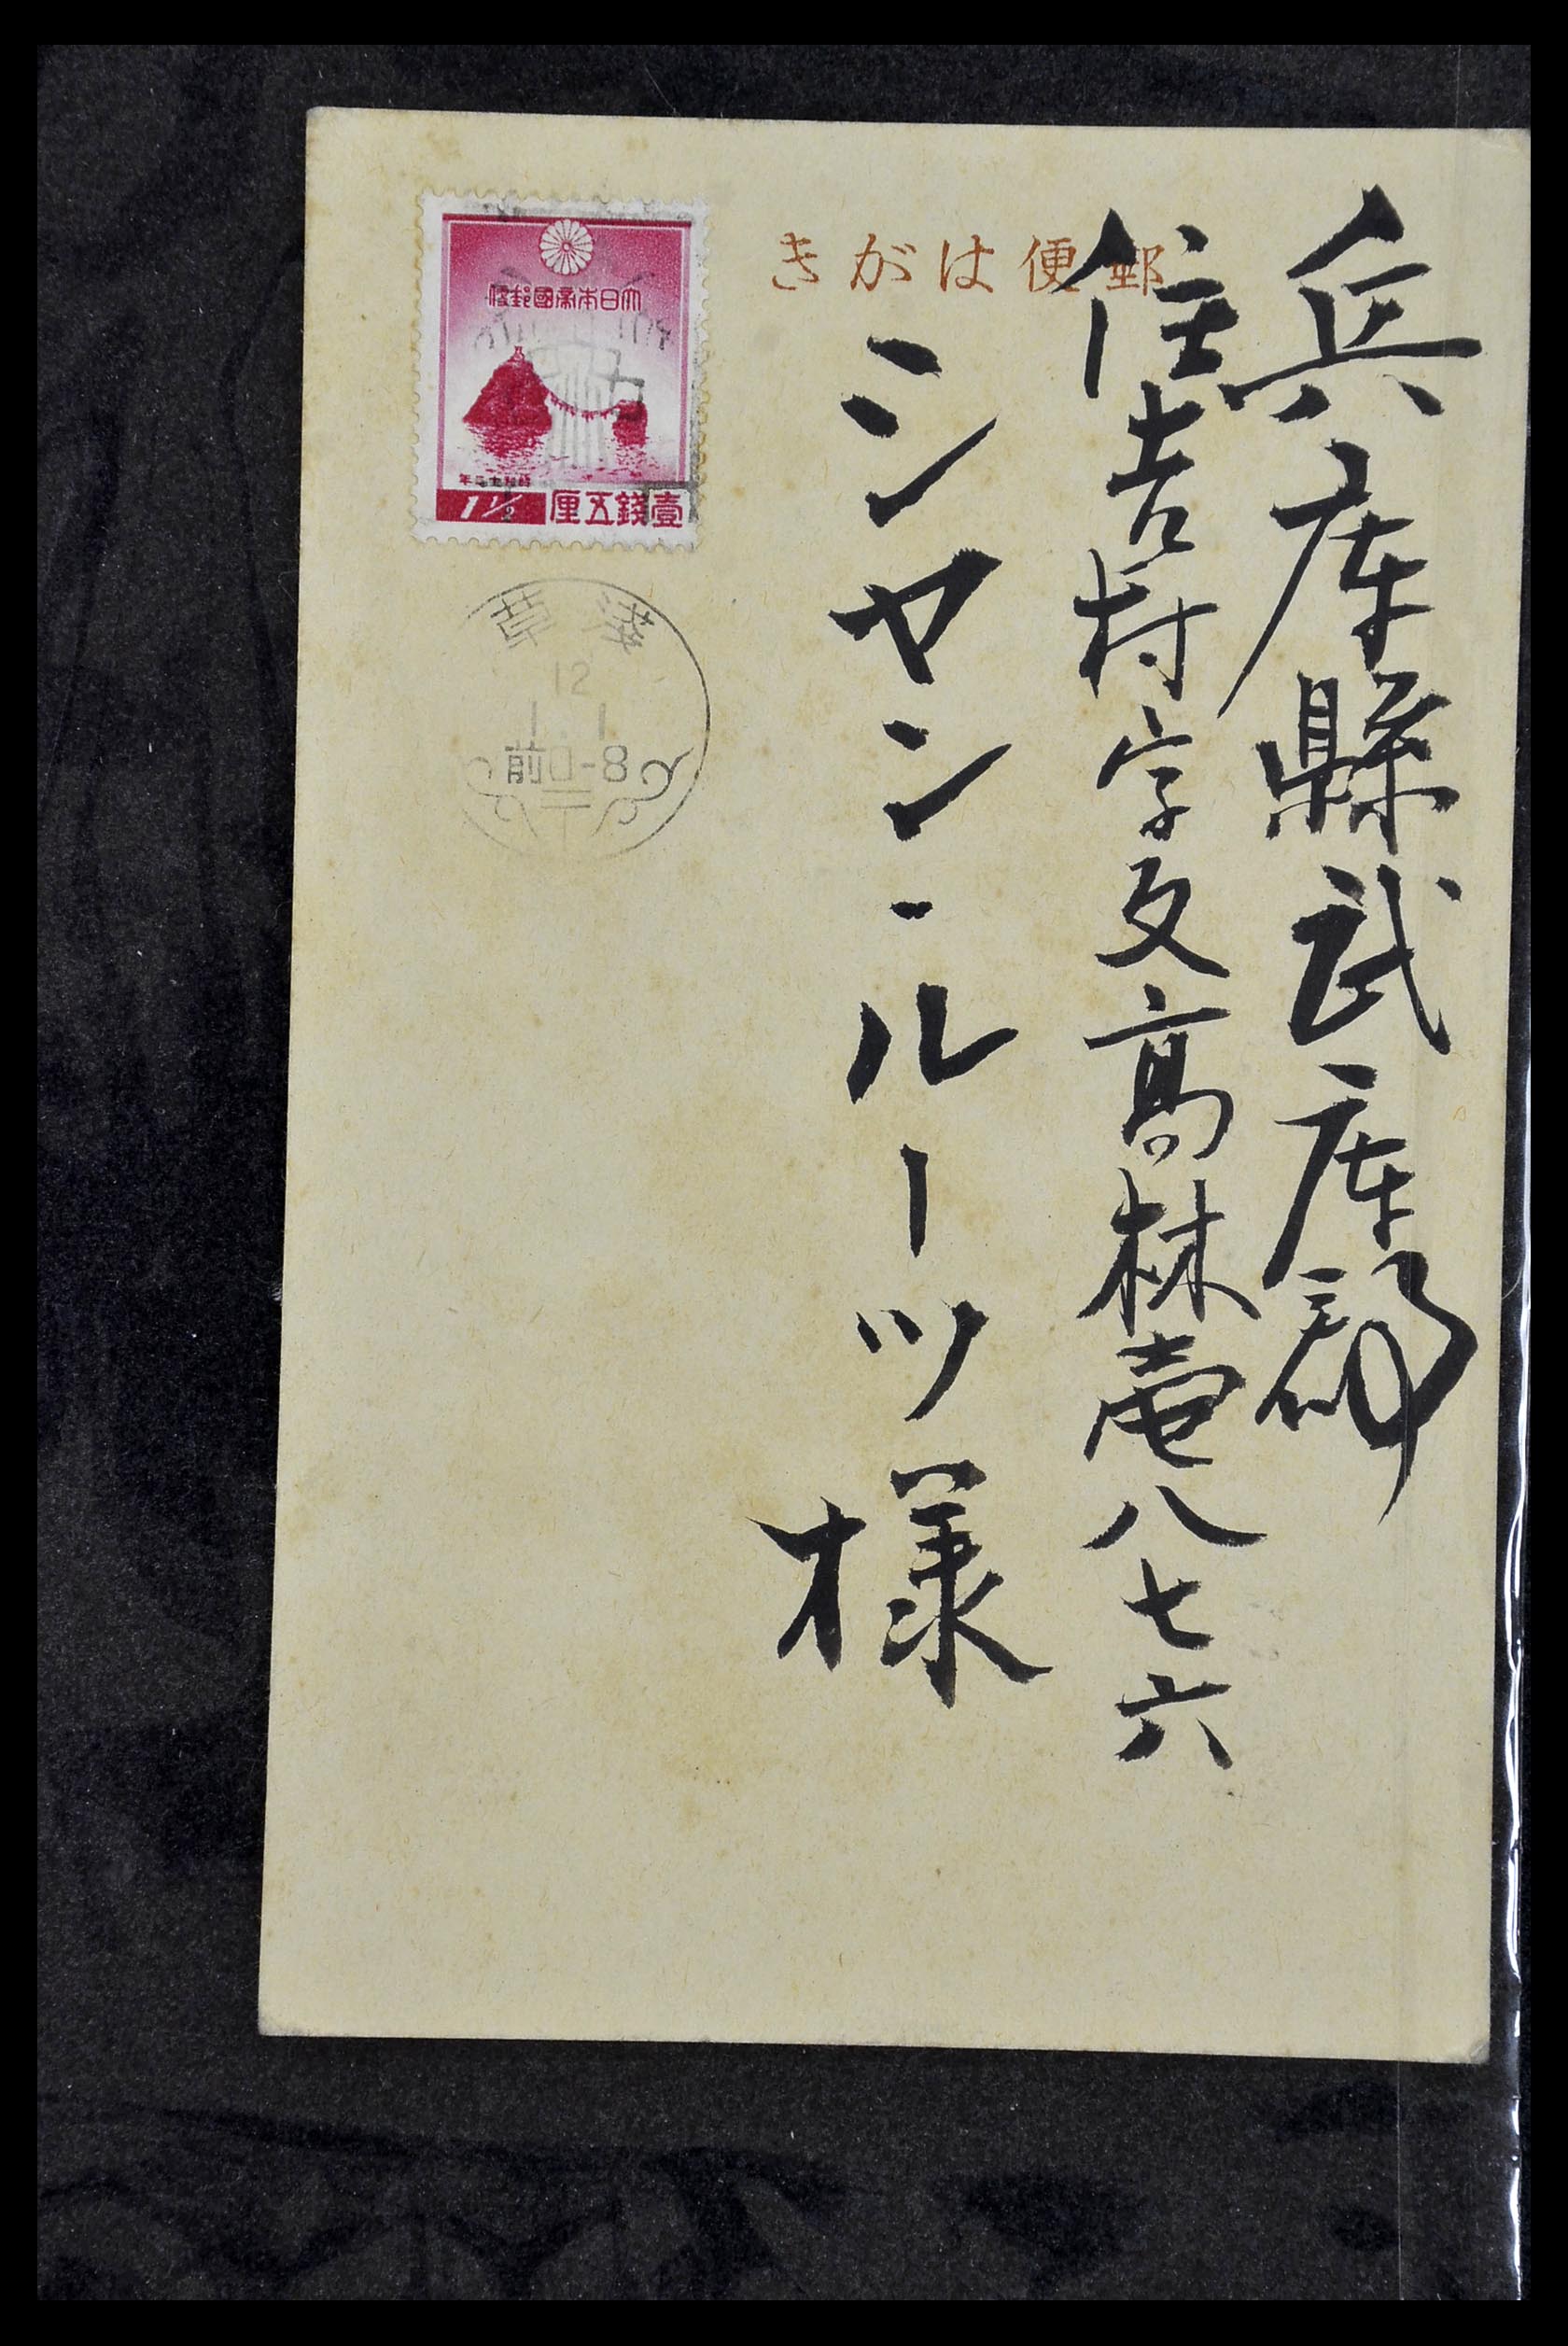 郵便はがき
兵庫縣武庫郡
住吉村字反高林壱八七六
シヤン・ルーツ様
大日本帝國郵便
昭和十二年
1½ 壹錢五厘
淺草
12
1.1
前0-8